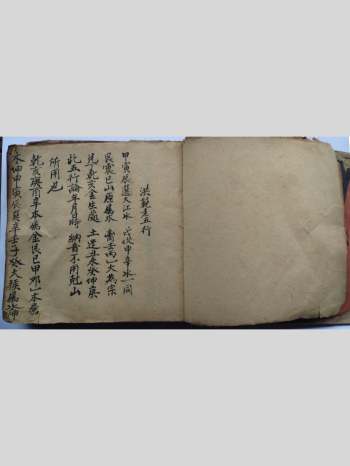 洪範老五行
甲寅辰巽大江水 戌坎申辛水一同
艮震巳山原屬木 离壬丙乙火為宗
兌丁乾亥金生處 土逢丑未癸坤庚
此五行論年月日時 納音不用尅山
所用也
乾亥庚酉辛本為金艮巳甲卯乙木
坤申寅辰巽辛壬子癸大